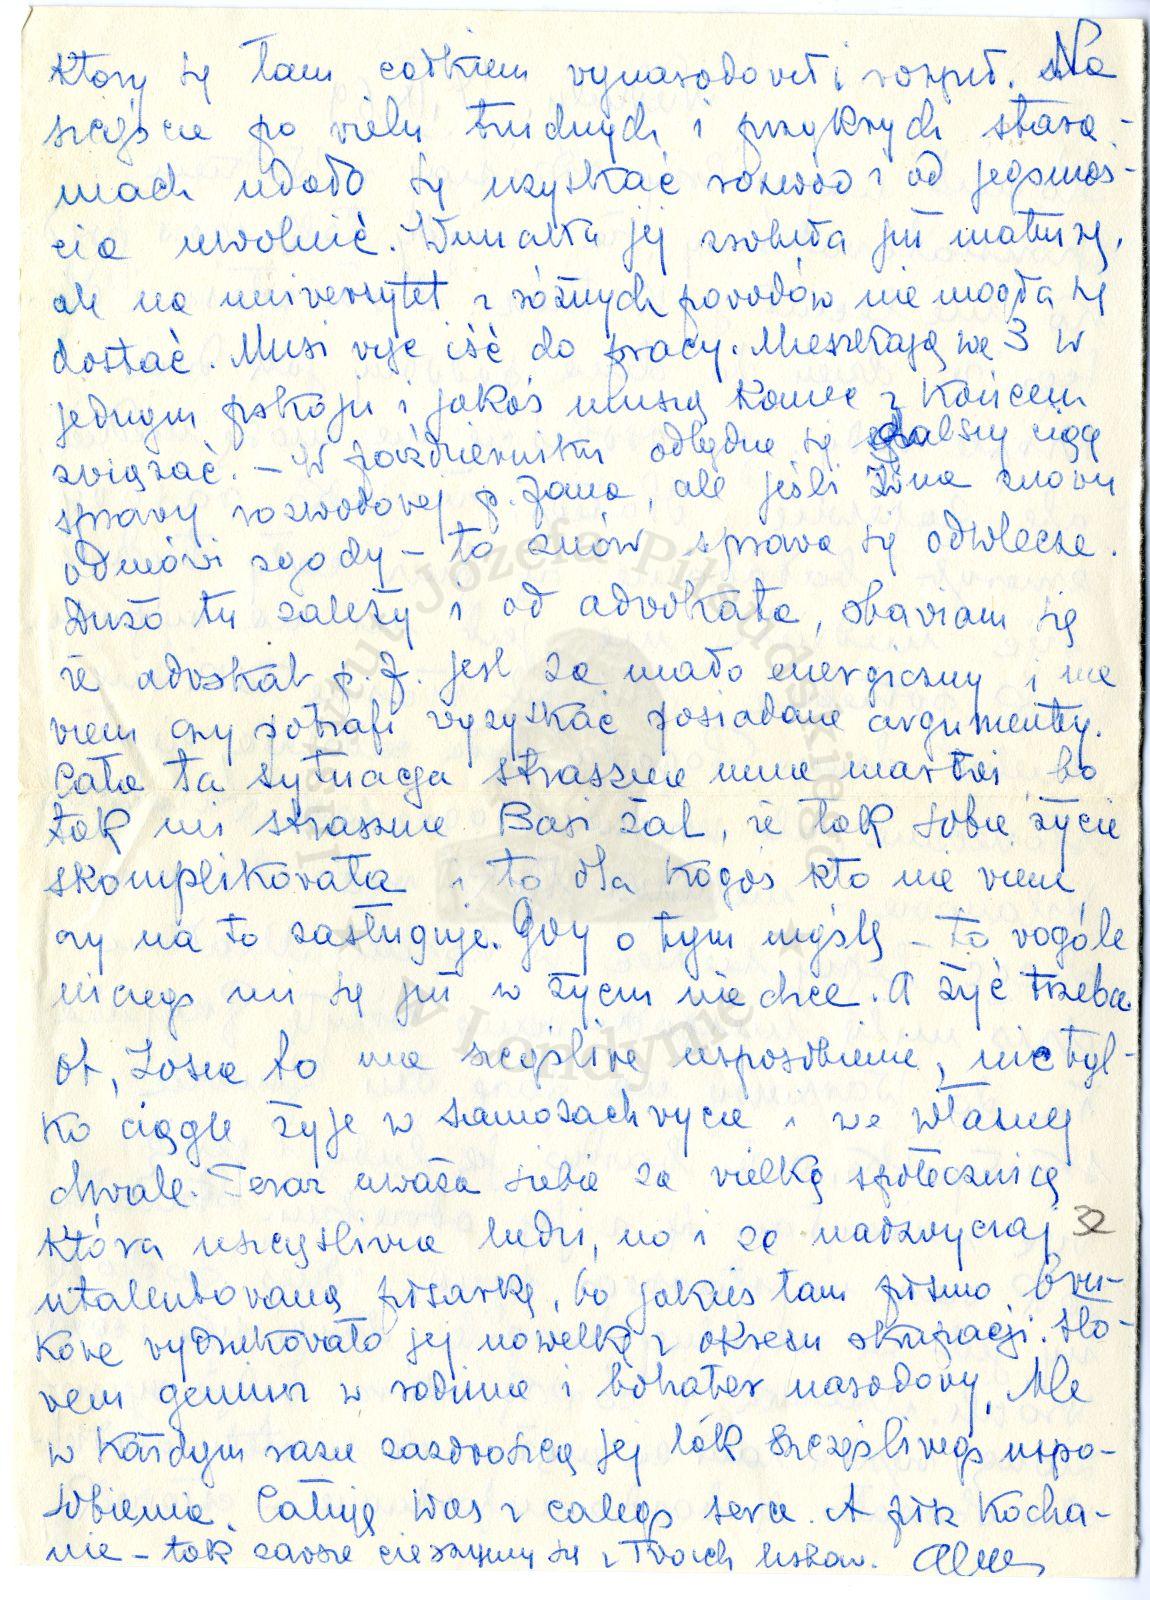 który się tam całkiem wynarodowił i rozpił. Na
szczęście po wielu trudnych i przykrych stara-
niach udało się uzyskać rozwód i od jegomoś-
cia uwolnić. Wnuczka jej zrobiła już maturę,
ale na uniwersytet z różnych powodów nie mogła się
dostać. Musi więc iść do pracy. Mieszkają we 3 w
jednym pokoju i jakoś muszą koniec z końcem
związać. – W październiku odbędzie się dalszy ciąg
sprawy rozwodowej p. Jana, ale jeśli żona znowu
odmówi zgody – to znów sprawa się odwlecze.
Dużo tu zależy i od adwokata, obawiam się
że adwokat p. J. jest za mało energiczny i nie
wiem czy potrafi wyzyskać posiadane argumenty.
Cała ta sytuacja strasznie mnie martwi, bo
tak mi strasznie Basi żal, że tak sobie życie
skomplikowała i to dla kogoś kto nie wiem
czy na to zasługuje. Gdy o tym myślę – to wogóle
niczego mi się już w życiu nie chce. A żyć trzeba.
Ot, Zosia to ma szczęśliwe usposobienie, nie tyl-
ko ciągle żyje w samozachwycie i we własnej
chwale. Teraz uważa siebie za wielką społecznicę
która uszczęśliwia ludzi, no i za nadzwyczaj 32
utalentowaną pisarkę, bo jakieś tam pismo bru-
kowe wydrukowało jej nowelkę z okresu okupacji. Sło-
wem geniusz w rodzinie i bohater narodowy. Ale
w każdym razie zazdroszczę jej tak szczęśliwego uspo-
sobienia. Całuję Was z całego serca. A pisz Kocha-
nie – tak zawsze cieszymy się z Twoich listów.
Instytut Józefa Piłsudskiego w Londynie